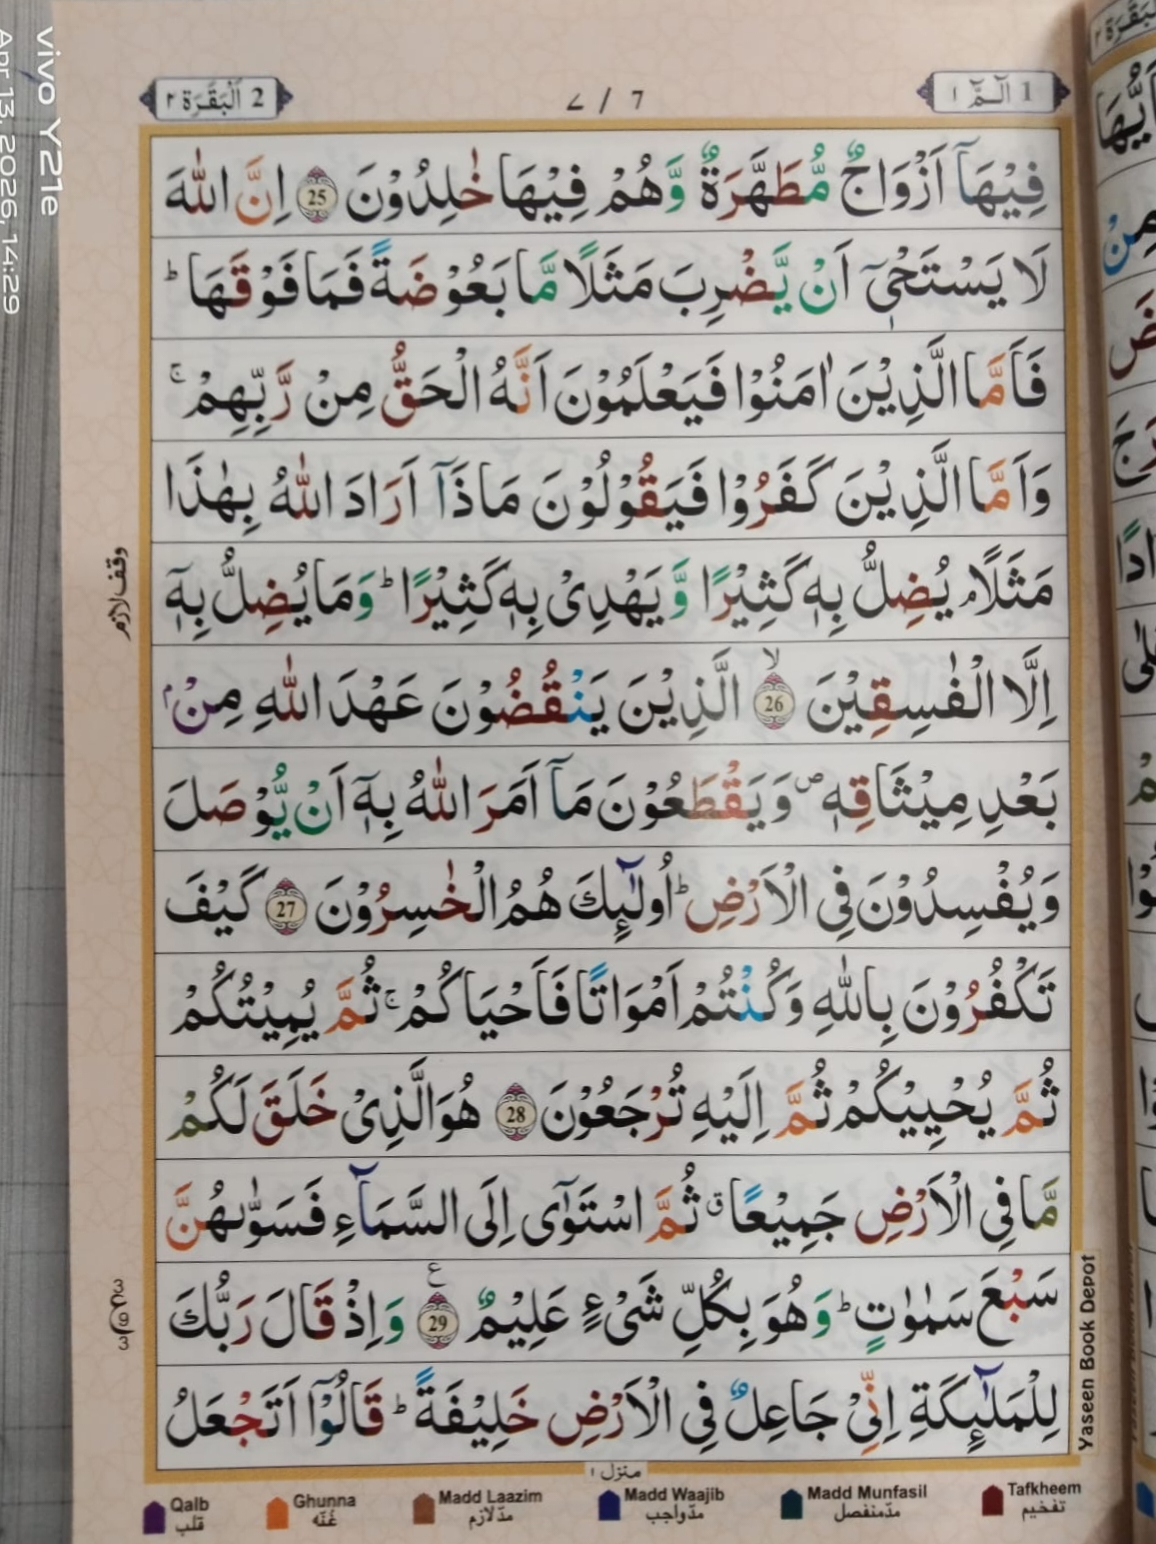 1 الٓـمّٓ ١
7 / ٧
2 اَلْبَقَرَة ٢
فِيْهَاۤ اَزْوَاجٌ مُّطَهَّرَةٌ وَّهُمْ فِيْهَا خٰلِدُوْنَ 25 اِنَّ اللّٰهَ
لَا يَسْتَحْيٖۤ اَنْ يَّضْرِبَ مَثَلًا مَّا بَعُوْضَةً فَمَا فَوْقَهَا ؕ
فَاَمَّا الَّذِيْنَ اٰمَنُوْا فَيَعْلَمُوْنَ اَنَّهُ الْحَقُّ مِنْ رَّبِّهِمْ ۚ
وَاَمَّا الَّذِيْنَ كَفَرُوْا فَيَقُوْلُوْنَ مَاذَاۤ اَرَادَ اللّٰهُ بِهٰذَا
مَثَلًا ۘ يُضِلُّ بِهٖ كَثِيْرًا وَّيَهْدِىْ بِهٖ كَثِيْرًا ؕ وَمَا يُضِلُّ بِهٖۤ
اِلَّا الْفٰسِقِيْنَ ۙ 26 الَّذِيْنَ يَنْقُضُوْنَ عَهْدَ اللّٰهِ مِنْۢ
بَعْدِ مِيْثَاقِهٖ ۖ وَيَقْطَعُوْنَ مَاۤ اَمَرَ اللّٰهُ بِهٖۤ اَنْ يُّوْصَلَ
وَيُفْسِدُوْنَ فِى الْاَرْضِ ؕ اُولٰٓئِكَ هُمُ الْخٰسِرُوْنَ 27 كَيْفَ
تَكْفُرُوْنَ بِاللّٰهِ وَكُنْتُمْ اَمْوَاتًا فَاَحْيَاكُمْ ۚ ثُمَّ يُمِيْتُكُمْ
ثُمَّ يُحْيِيْكُمْ ثُمَّ اِلَيْهِ تُرْجَعُوْنَ 28 هُوَ الَّذِىْ خَلَقَ لَكُمْ
مَّا فِى الْاَرْضِ جَمِيْعًا ۗ ثُمَّ اسْتَوٰۤى اِلَى السَّمَآءِ فَسَوّٰىهُنَّ
سَبْعَ سَمٰوٰتٍ ؕ وَهُوَ بِكُلِّ شَىْءٍ عَلِيْمٌ 29 ع وَاِذْ قَالَ رَبُّكَ
لِلْمَلٰٓئِكَةِ اِنِّىْ جَاعِلٌ فِى الْاَرْضِ خَلِيْفَةً ؕ قَالُوْۤا اَتَجْعَلُ
منزل ١
وقف لازم
Yaseen Book Depot
Qalb قلب
Ghunna غنّه
Madd Laazim مدّ لازم
Madd Waajib مدّ واجب
Madd Munfasil مدّ منفصل
Tafkheem تفخيم
vivo Y21e
Apr 13, 2026, 14:29